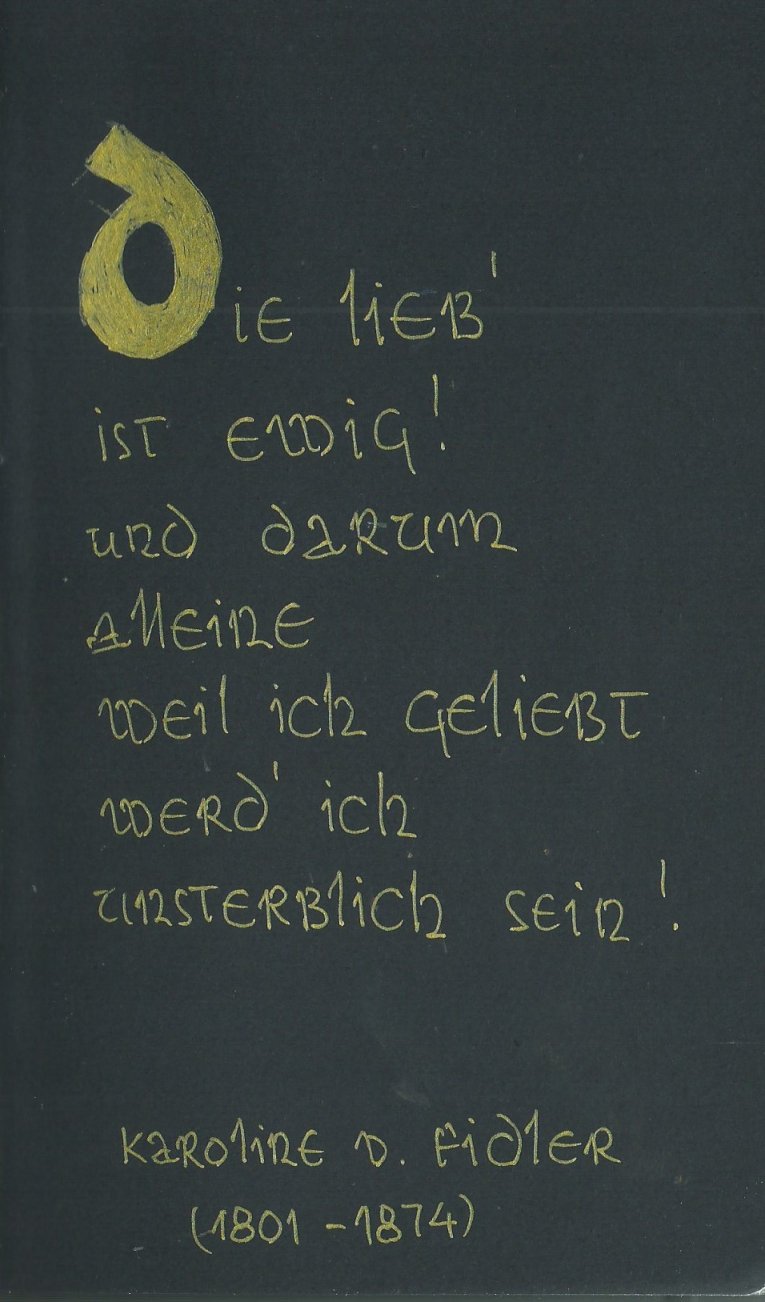 Die lieb'
ist ewig!
und darum
alleine
weil ich geliebt
werd' ich
unsterblich sein!
Karoline v. Fidler
(1801 - 1874)